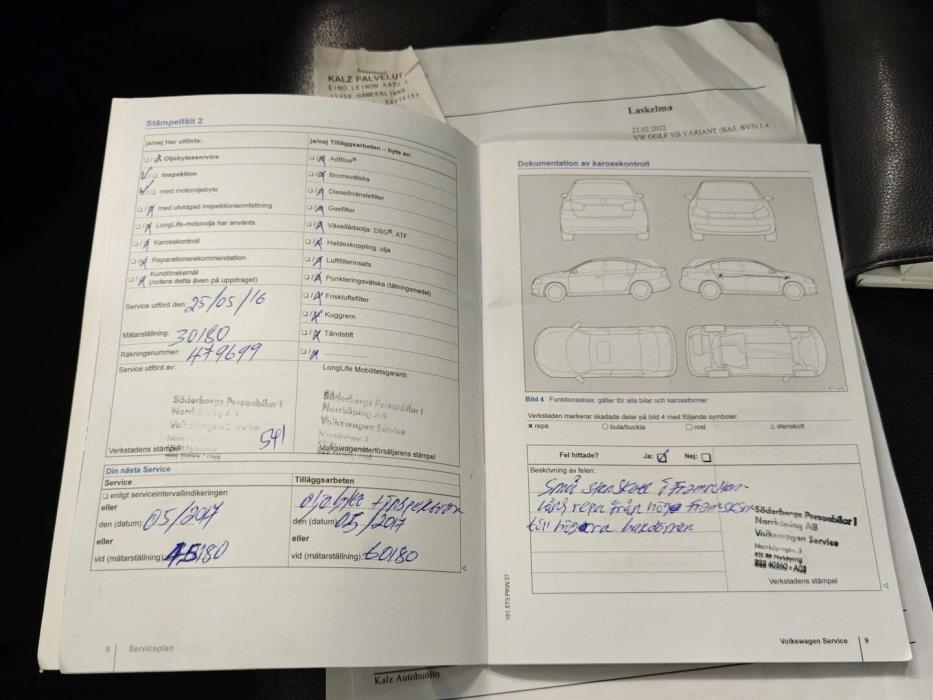 KALZ PALVELUT
EINO LEINON KATU
HÄMEENLINNA
Laskelma
22.02.2022
VW GOLF VII VARIANT (BA5, BV5) 1.4
Stämpelfält 2
ja/nej Har utförts:
Oljebytesservice
Inspektion
med motoroljebyte
med utvidgad inspektionsomfattning
LongLife-motorolja har använts
Karosskontroll
Reparationsrekommendation
Kundönskemål
(notera detta även på uppdraget)
Service utförd den: 25/05/16
Mätarställning: 30180
Räkningsnummer: 479699
Service utförd av:
Söderbergs Personbilar i
Norrköping AB
Volkswagen Service
541
Verkstadens stämpel
ja/nej Tilläggsarbeten – byte av:
AdBlue®
Bromsvätska
Dieselbränslefilter
Gasfilter
Växellådsolja: DSG®, ATF
Haldexkoppling: olja
Luftfilterinsats
Punkteringsvätska (tätningsmedel)
Friskluftsfilter
Kuggrem
Tändstift
LongLife Mobilitetsgaranti:
Söderbergs Personbilar i
Norrköping AB
Volkswagen Service
Volkswagenåterförsäljarens stämpel
Din nästa Service
Service
enligt serviceintervallindikeringen
eller
den (datum) 05/2017
eller
vid (mätarställning) 45180
Tilläggsarbeten
oljebyte + inspektion
den (datum) 05/2017
eller
vid (mätarställning) 60180
8 Serviceplan
Dokumentation av karosskontroll
Bild 4 Funktionsskiss: gäller för alla bilar och karossformer
Verkstaden markerar skadade delar på bild 4 med följande symboler:
× repa ○ bula/buckla □ rost △ stenskott
Fel hittade? Ja: Nej:
Beskrivning av felen:
Små stenskott i
lång repa från
till högra bakdörren
Söderbergs Personbilar I
Norrköping AB
Volkswagen Service
Verkstadens stämpel
151.5T3.PKW.37
Volkswagen Service 9
Kalz Autohuolto